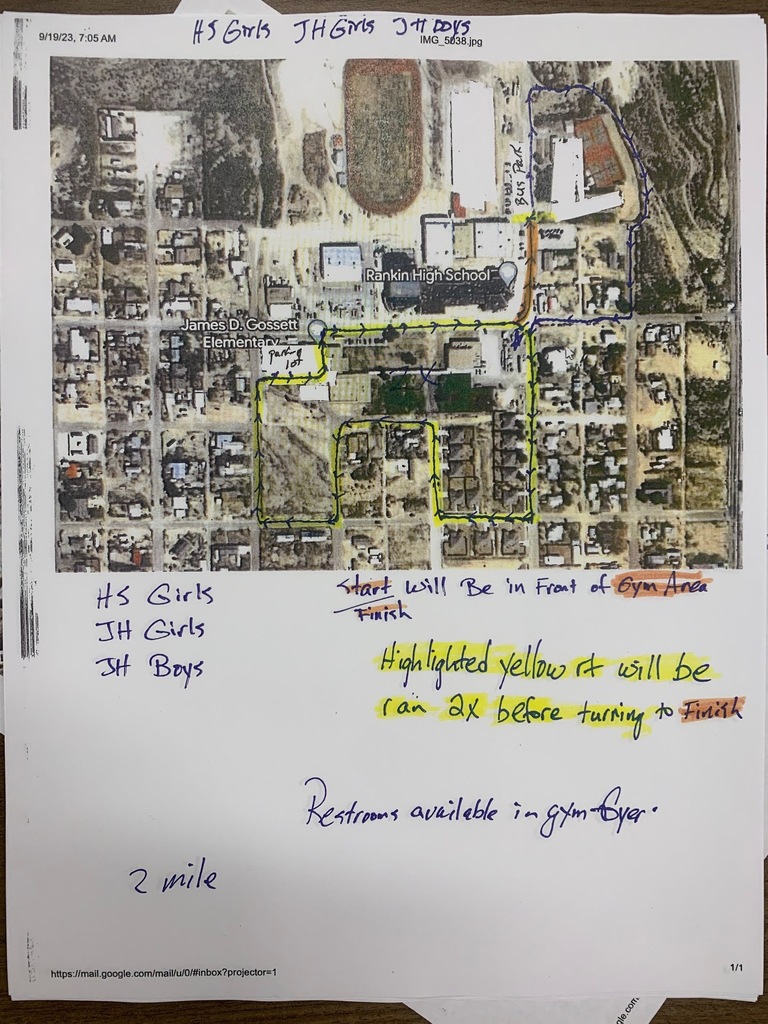 9/19/23, 7:05 AM
HS Girls JH Girls JH Boys
IMG_5038.jpg
Bus Park
Rankin High School
James D. Gossett
Elementary
parking
lot
HS Girls
JH Girls
JH Boys
Start Will Be in Front of Gym Area
Finish
Highlighted yellow rt will be
ran 2x before turning to Finish
Restrooms available in gym foyer.
2 mile
https://mail.google.com/mail/u/0/#inbox?projector=1
1/1
gle.com